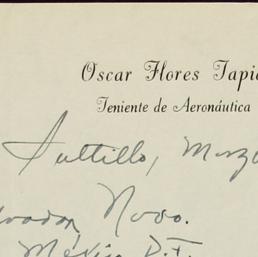 Oscar Flores Tapi
Teniente de Aeronáutica
Saltillo, Marzo
lvador Novo.
México, D.F.